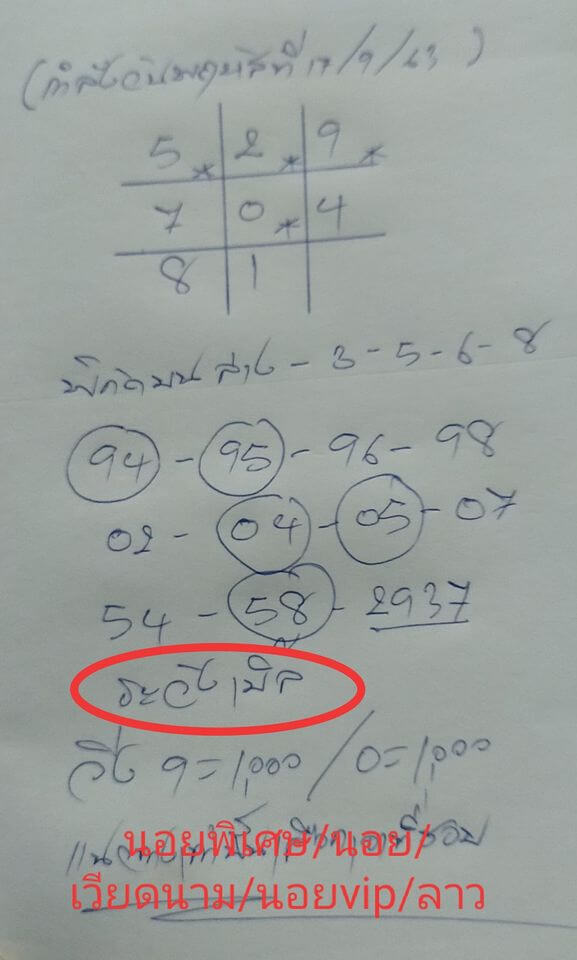 (กำลังวันพฤหัสที่ 17/9/63)
5* 2* 9*
7 0* 4
8 1
พิกัดบน ล่าง - 3 - 5 - 6 - 8
94 - 95 - 96 - 98
02 - 04 - 05 - 07
54 - 58 - 2937
ระวังเบิ้ล
วิ่ง 9=1,000 / 0=1,000
นอยพิเศษ/นอย/
เวียดนาม/นอยvip/ลาว